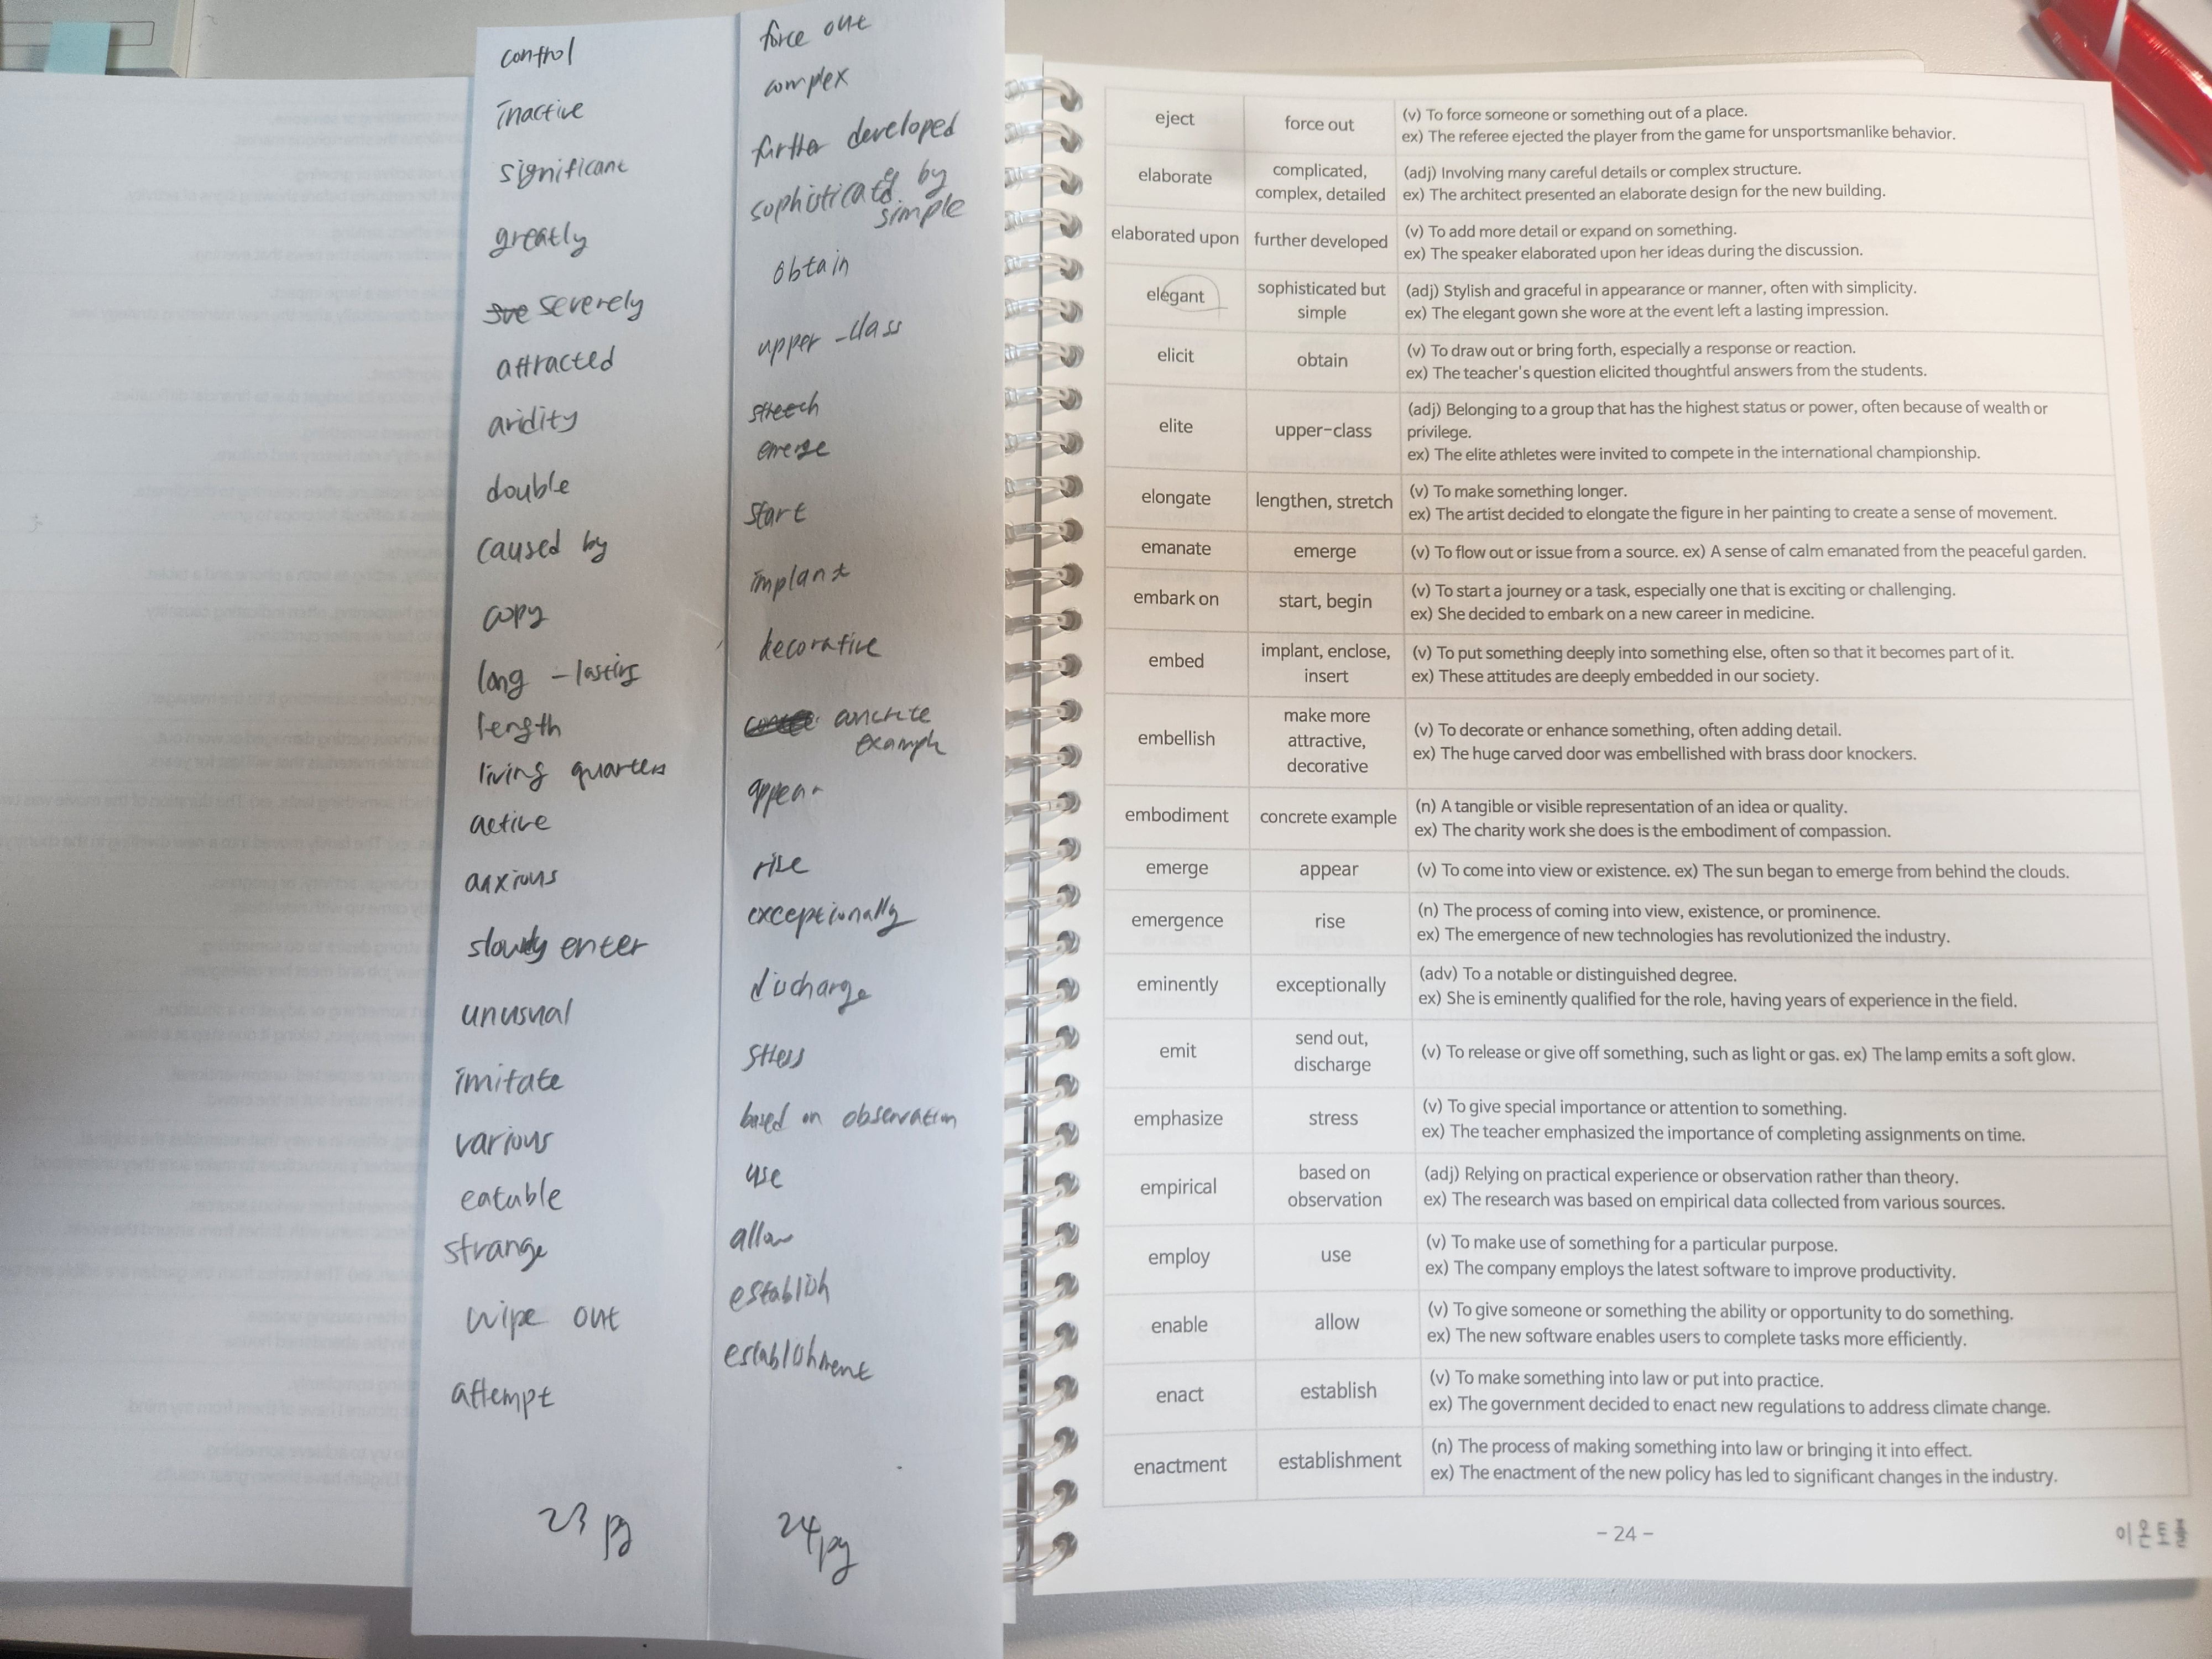 control
inactive
significant
greatly
severely
attracted
aridity
double
caused by
copy
long - lasting
length
living quarters
active
anxious
slowly enter
unusual
imitate
various
eatable
strange
wipe out
attempt
23 pg
force out
complex
further developed
sophisticated by
simple
obtain
upper - class
strech
emerge
start
implant
decorative
concrete
example
appear
rise
exceptionally
discharge
stress
based on observation
use
allow
establish
establishment
24 pg
eject
force out
(v) To force someone or something out of a place.
ex) The referee ejected the player from the game for unsportsmanlike behavior.
elaborate
complicated,
complex, detailed
(adj) Involving many careful details or complex structure.
ex) The architect presented an elaborate design for the new building.
elaborated upon
further developed
(v) To add more detail or expand on something.
ex) The speaker elaborated upon her ideas during the discussion.
elegant
sophisticated but
simple
(adj) Stylish and graceful in appearance or manner, often with simplicity.
ex) The elegant gown she wore at the event left a lasting impression.
elicit
obtain
(v) To draw out or bring forth, especially a response or reaction.
ex) The teacher's question elicited thoughtful answers from the students.
elite
upper-class
(adj) Belonging to a group that has the highest status or power, often because of wealth or
privilege.
ex) The elite athletes were invited to compete in the international championship.
elongate
lengthen, stretch
(v) To make something longer.
ex) The artist decided to elongate the figure in her painting to create a sense of movement.
emanate
emerge
(v) To flow out or issue from a source. ex) A sense of calm emanated from the peaceful garden.
embark on
start, begin
(v) To start a journey or a task, especially one that is exciting or challenging.
ex) She decided to embark on a new career in medicine.
embed
implant, enclose,
insert
(v) To put something deeply into something else, often so that it becomes part of it.
ex) These attitudes are deeply embedded in our society.
embellish
make more
attractive,
decorative
(v) To decorate or enhance something, often adding detail.
ex) The huge carved door was embellished with brass door knockers.
embodiment
concrete example
(n) A tangible or visible representation of an idea or quality.
ex) The charity work she does is the embodiment of compassion.
emerge
appear
(v) To come into view or existence. ex) The sun began to emerge from behind the clouds.
emergence
rise
(n) The process of coming into view, existence, or prominence.
ex) The emergence of new technologies has revolutionized the industry.
eminently
exceptionally
(adv) To a notable or distinguished degree.
ex) She is eminently qualified for the role, having years of experience in the field.
emit
send out,
discharge
(v) To release or give off something, such as light or gas. ex) The lamp emits a soft glow.
emphasize
stress
(v) To give special importance or attention to something.
ex) The teacher emphasized the importance of completing assignments on time.
empirical
based on
observation
(adj) Relying on practical experience or observation rather than theory.
ex) The research was based on empirical data collected from various sources.
employ
use
(v) To make use of something for a particular purpose.
ex) The company employs the latest software to improve productivity.
enable
allow
(v) To give someone or something the ability or opportunity to do something.
ex) The new software enables users to complete tasks more efficiently.
enact
establish
(v) To make something into law or put into practice.
ex) The government decided to enact new regulations to address climate change.
enactment
establishment
(n) The process of making something into law or bringing it into effect.
ex) The enactment of the new policy has led to significant changes in the industry.
- 24 -
이온토플